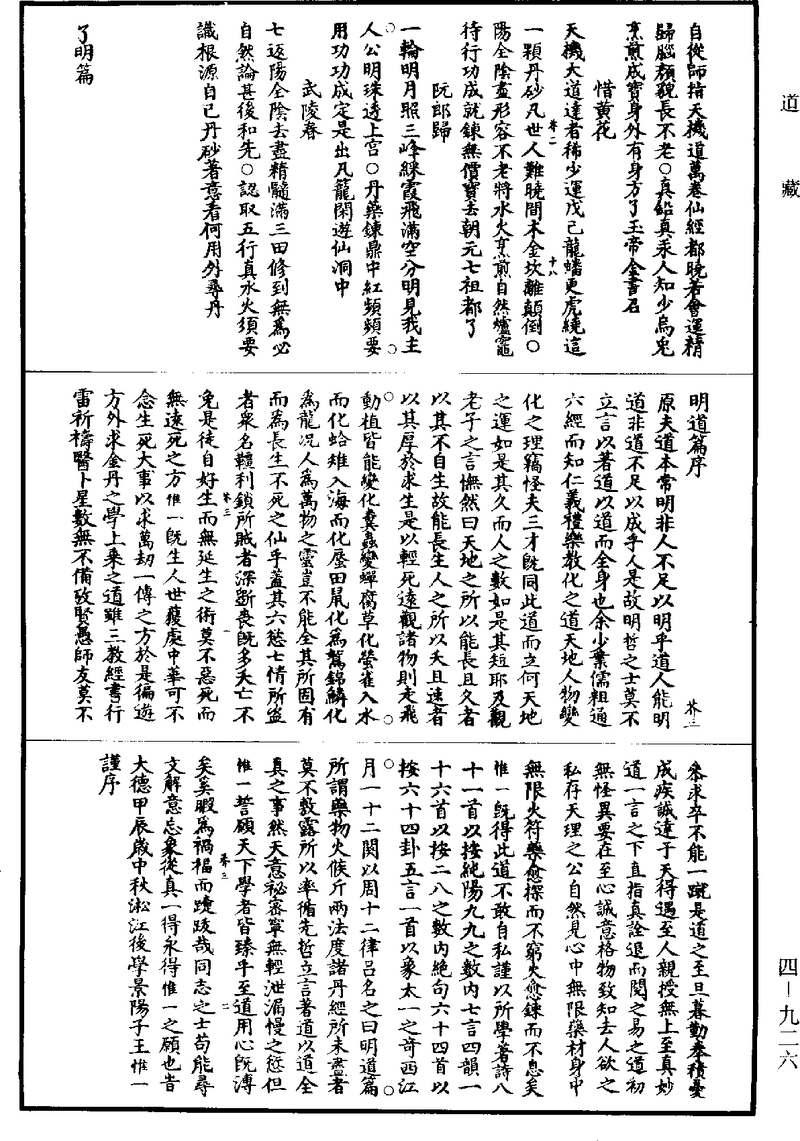 道藏
四－九二六
自從師指天機道萬卷仙經都曉若會運精
歸腦顏貌長不老○真鉛真汞人知少烏兔
烹煎成寶身外有身方了玉帝金書召
惜黃花
天機大道達者稀少運戊己龍蟠更虎繞這
一顆丹砂凡世人難曉間木金坎離顛倒○
陽全陰盡形容不老將水火烹煎自然爐竈
待行功成就鍊無價寶去朝元七祖都了
阮郎歸
一輪明月照三峰綵霞飛滿空分明見我主
人公明珠透上宮○丹藥鍊鼎中紅頻頻要
用功功成定是出凡籠閑遊仙洞中
武陵春
七返陽全陰去盡精髓滿三田修到無為必
自然論甚後和先○認取五行真水火須要
識根源自己丹砂著意看何用外尋丹
了明篇
明道篇序
原夫道本常明非人不足以明乎道人能明
道非道不足以成乎人是故明哲之士莫不
立言以著道以道而全身也余少業儒粗通
六經而知仁義禮樂教化之道天地人物變
化之理竊怪夫三才既同此道而立何天地
之運如是其久而人之數如是其短耶及觀
老子之言憮然曰天地之所以能長且久者
以其不自生故能長生人之所以夭且速者
以其厚於求生是以輕死遠觀諸物則走飛
動植皆能變化糞蟲變蟬腐草化螢雀入水
而化蛤雉入海而化蜃田鼠化為鴽錦鱗化
為龍況人為萬物之靈豈不能全其所固有
而為長生不死之仙乎蓋其六慾七情所盜
者衆名韁利鎖所賊者深斷喪既多夭亡不
免是徒自好生而無延生之術莫不惡死而
無遠死之方惟一既生人世獲處中華可不
念生死大事以求萬劫一傳之方於是徧遊
方外求金丹之學上乘之道雖三教經書行
雷祈禱醫卜星數無不備攷賢愚師友莫不
參求卒不能一蹴是道之至旦暮勤拳積憂
成疾誠達于天得遇至人親授無上至真妙
道一言之下直指真詮退而閱之易之道初
無怪異要在至心誠意格物致知去人欲之
私存天理之公自然見心中無限藥材身中
無限火符藥愈探而不窮火愈鍊而不息矣
惟一既得此道不敢自私謹以所學著詩八
十一首以按純陽九九之數内七言四韻一
十六首以按二八之數内絶句六十四首以
按六十四卦五言一首以象太一之奇西江
月一十二闋以周十二律吕名之曰明道篇
所謂藥物火候斤兩法度諸丹經所未盡者
莫不敷露所以率循先哲立言著道以道全
真之事然天意祕密寧無輕泄漏慢之愆但
惟一誓願天下學者皆臻乎至道用心既溥
矣奚暇為禍福而踌跂哉同志之士苟能尋
文解意忘象從真一得永得惟一之願也旹
大德甲辰歲中秋淞江後學景陽子王惟一
謹序